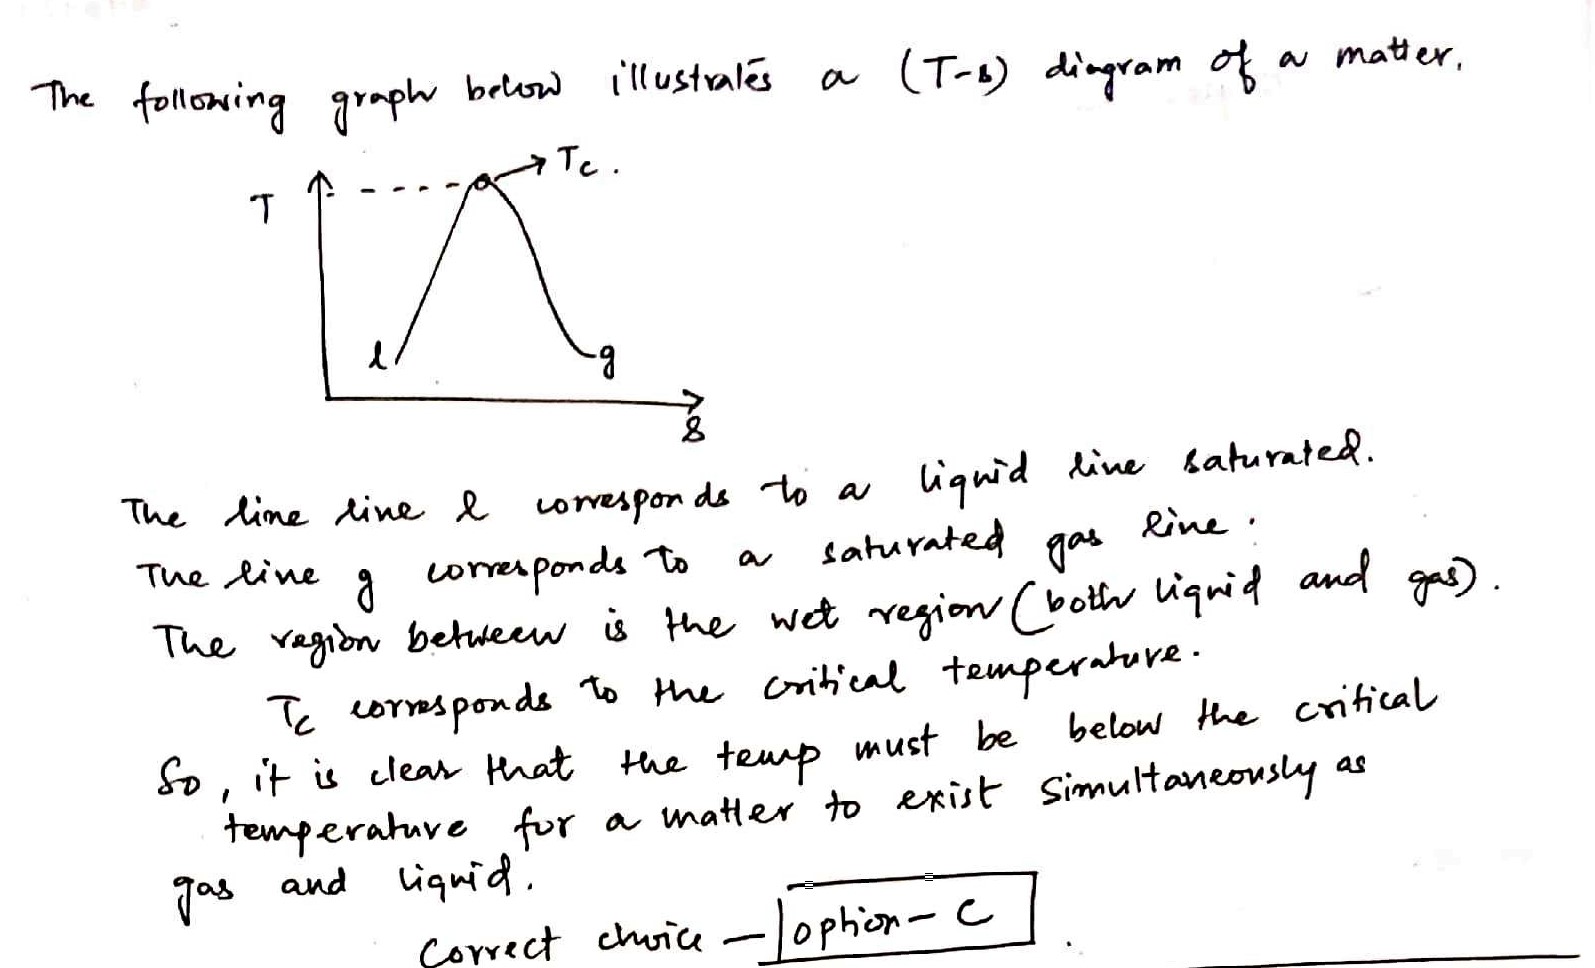 The following graph below illustrates a (T-s) diagram of a matter.
Tc.
T
l
g
s
The line line l corresponds to a liquid line saturated.
The line g corresponds to a saturated gas line.
The region between is the wet region (both liquid and gas).
Tc corresponds to the critical temperature.
So, it is clear that the temp must be below the critical
temperature for a matter to exist simultaneously as
gas and liquid.
Correct choice - option - C